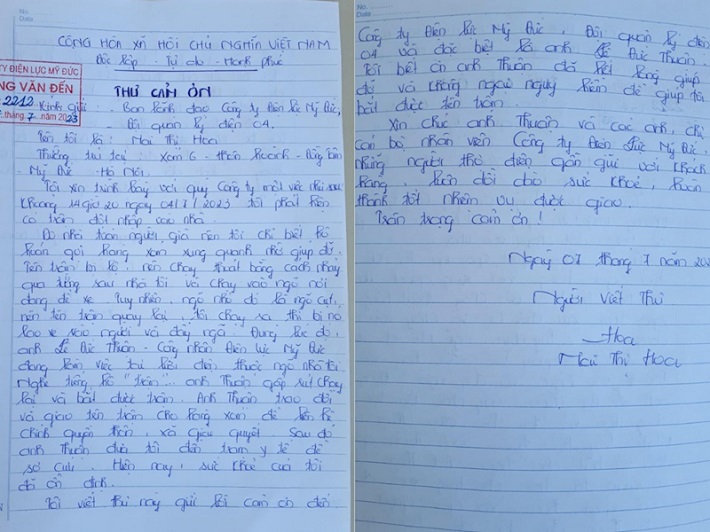 No.
Date
CỘNG HÒA XÃ HỘI CHỦ NGHĨA VIỆT NAM
Độc lập - Tự do - Hạnh phúc
TY ĐIỆN LỰC MỸ ĐỨC
NG VĂN ĐẾN
2212
tháng 7 năm 2023
THƯ CẢM ƠN
Kính gửi: - Ban lãnh đạo Công ty Điện lực Mỹ Đức,
- Đội quản lý điện 04.
Tên tôi là: Mai Thị Hoa
Thường trú tại: Xóm 6 - thôn
- Mỹ Đức - Hà Nội.
Tôi xin trình bày với quý Công ty một việc như sau
Khoảng 14 giờ 20 ngày 04/7/2023 tôi phát hiện
có trộm đột nhập vào nhà.
Do nhà toàn người già nên tôi chỉ biết hô
hoán gọi hàng xóm xung quanh nhờ giúp đỡ.
Tên trộm bị lộ, nên chạy thoát bằng cách nhảy
qua tường sau nhà tôi và chạy vào ngõ nơi
đang để xe. Tuy nhiên, ngõ nhỏ đó là ngõ cụt,
nên tên trộm quay lại, tôi chạy ra thì bị nó
lao xe vào người và đẩy ngã. Đúng lúc đó,
anh Lê Đức Thuận - Công nhân Điện lực Mỹ Đức
đang làm việc tại lưới điện thuộc ngõ nhà tôi.
Nghe tiếng hô "trộm" anh Thuận gấp rút chạy
lại và bắt được trộm. Anh Thuận trao đổi
và giao tên trộm cho hàng xóm để liên hệ
chính quyền thôn, xã giải quyết. Sau đó
anh Thuận đưa tôi đến trạm y tế để
sơ cứu. Hiện nay, sức khỏe của tôi
đã ổn định.
Tôi viết thư này gửi lời cảm ơn đến
No.
Date
Công ty Điện lực Mỹ Đức, Đội quản lý điện
04 và đặc biệt là anh Lê Đức Thuận.
Tôi biết ơn anh Thuận đã hết lòng giúp
đỡ và không ngại nguy hiểm để giúp tôi
bắt được tên trộm.
Xin chúc anh Thuận và các anh, chị
cán bộ nhân viên Công ty Điện lực Mỹ Đức,
những người thợ điện gần gũi với khách
hàng, luôn dồi dào sức khoẻ, hoàn
thành tốt nhiệm vụ được giao.
Trân trọng cảm ơn!
Ngày 07 tháng 7 năm 202
Người viết thư
Hoa
Mai Thị Hoa